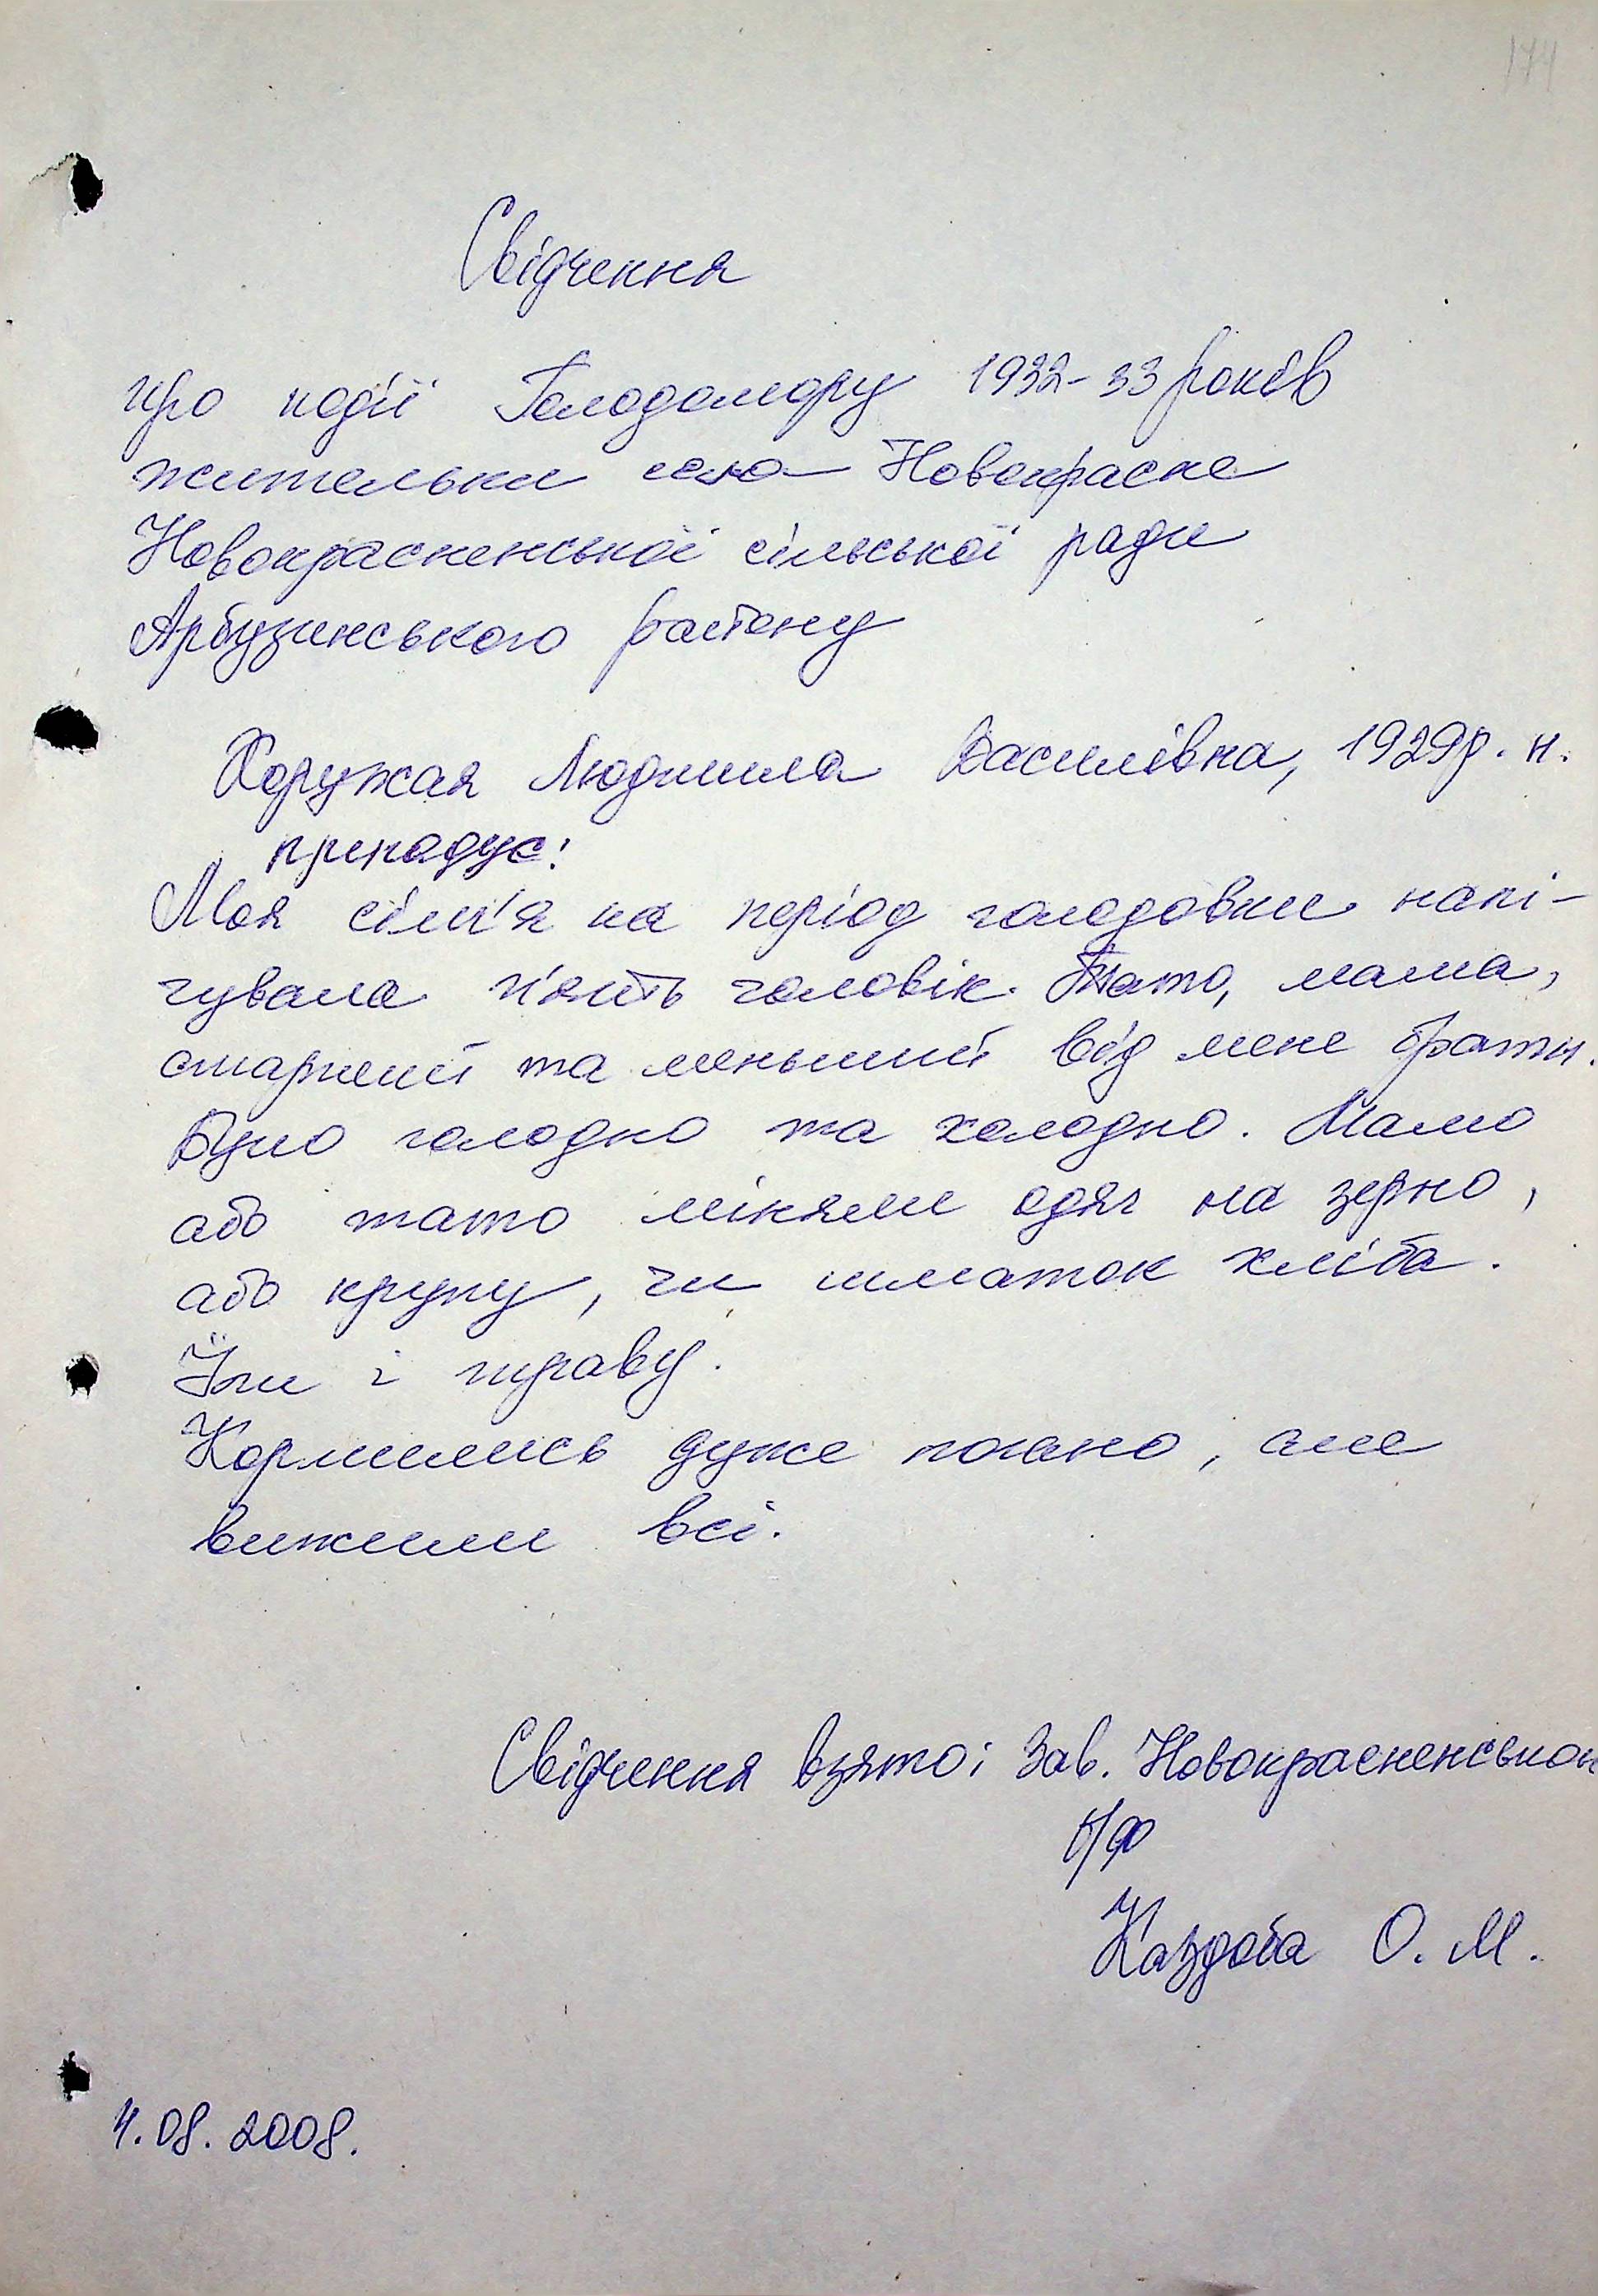 174
Свідчення
про події Голодомору 1932-33 років
жительки села Новокрасне
Новокрасненської сільської ради
Арбузинського району
Хоружая Людмила Василівна, 1929р. н.
пригадує:
Моя сім'я на період голодовки налі-
чувала п'ять чоловік. Тато, мама,
старший та меньший від мене брати.
Було голодно та холодно. Мама
або тато міняли одяг на зерно,
або крупу, чи шматок хліба.
Їли і траву.
Кормились дуже погано, але
вижили всі.
Свідчення взято: Зав. Новокрасненською
б/ф
Каздоба О. М.
4.08.2008.